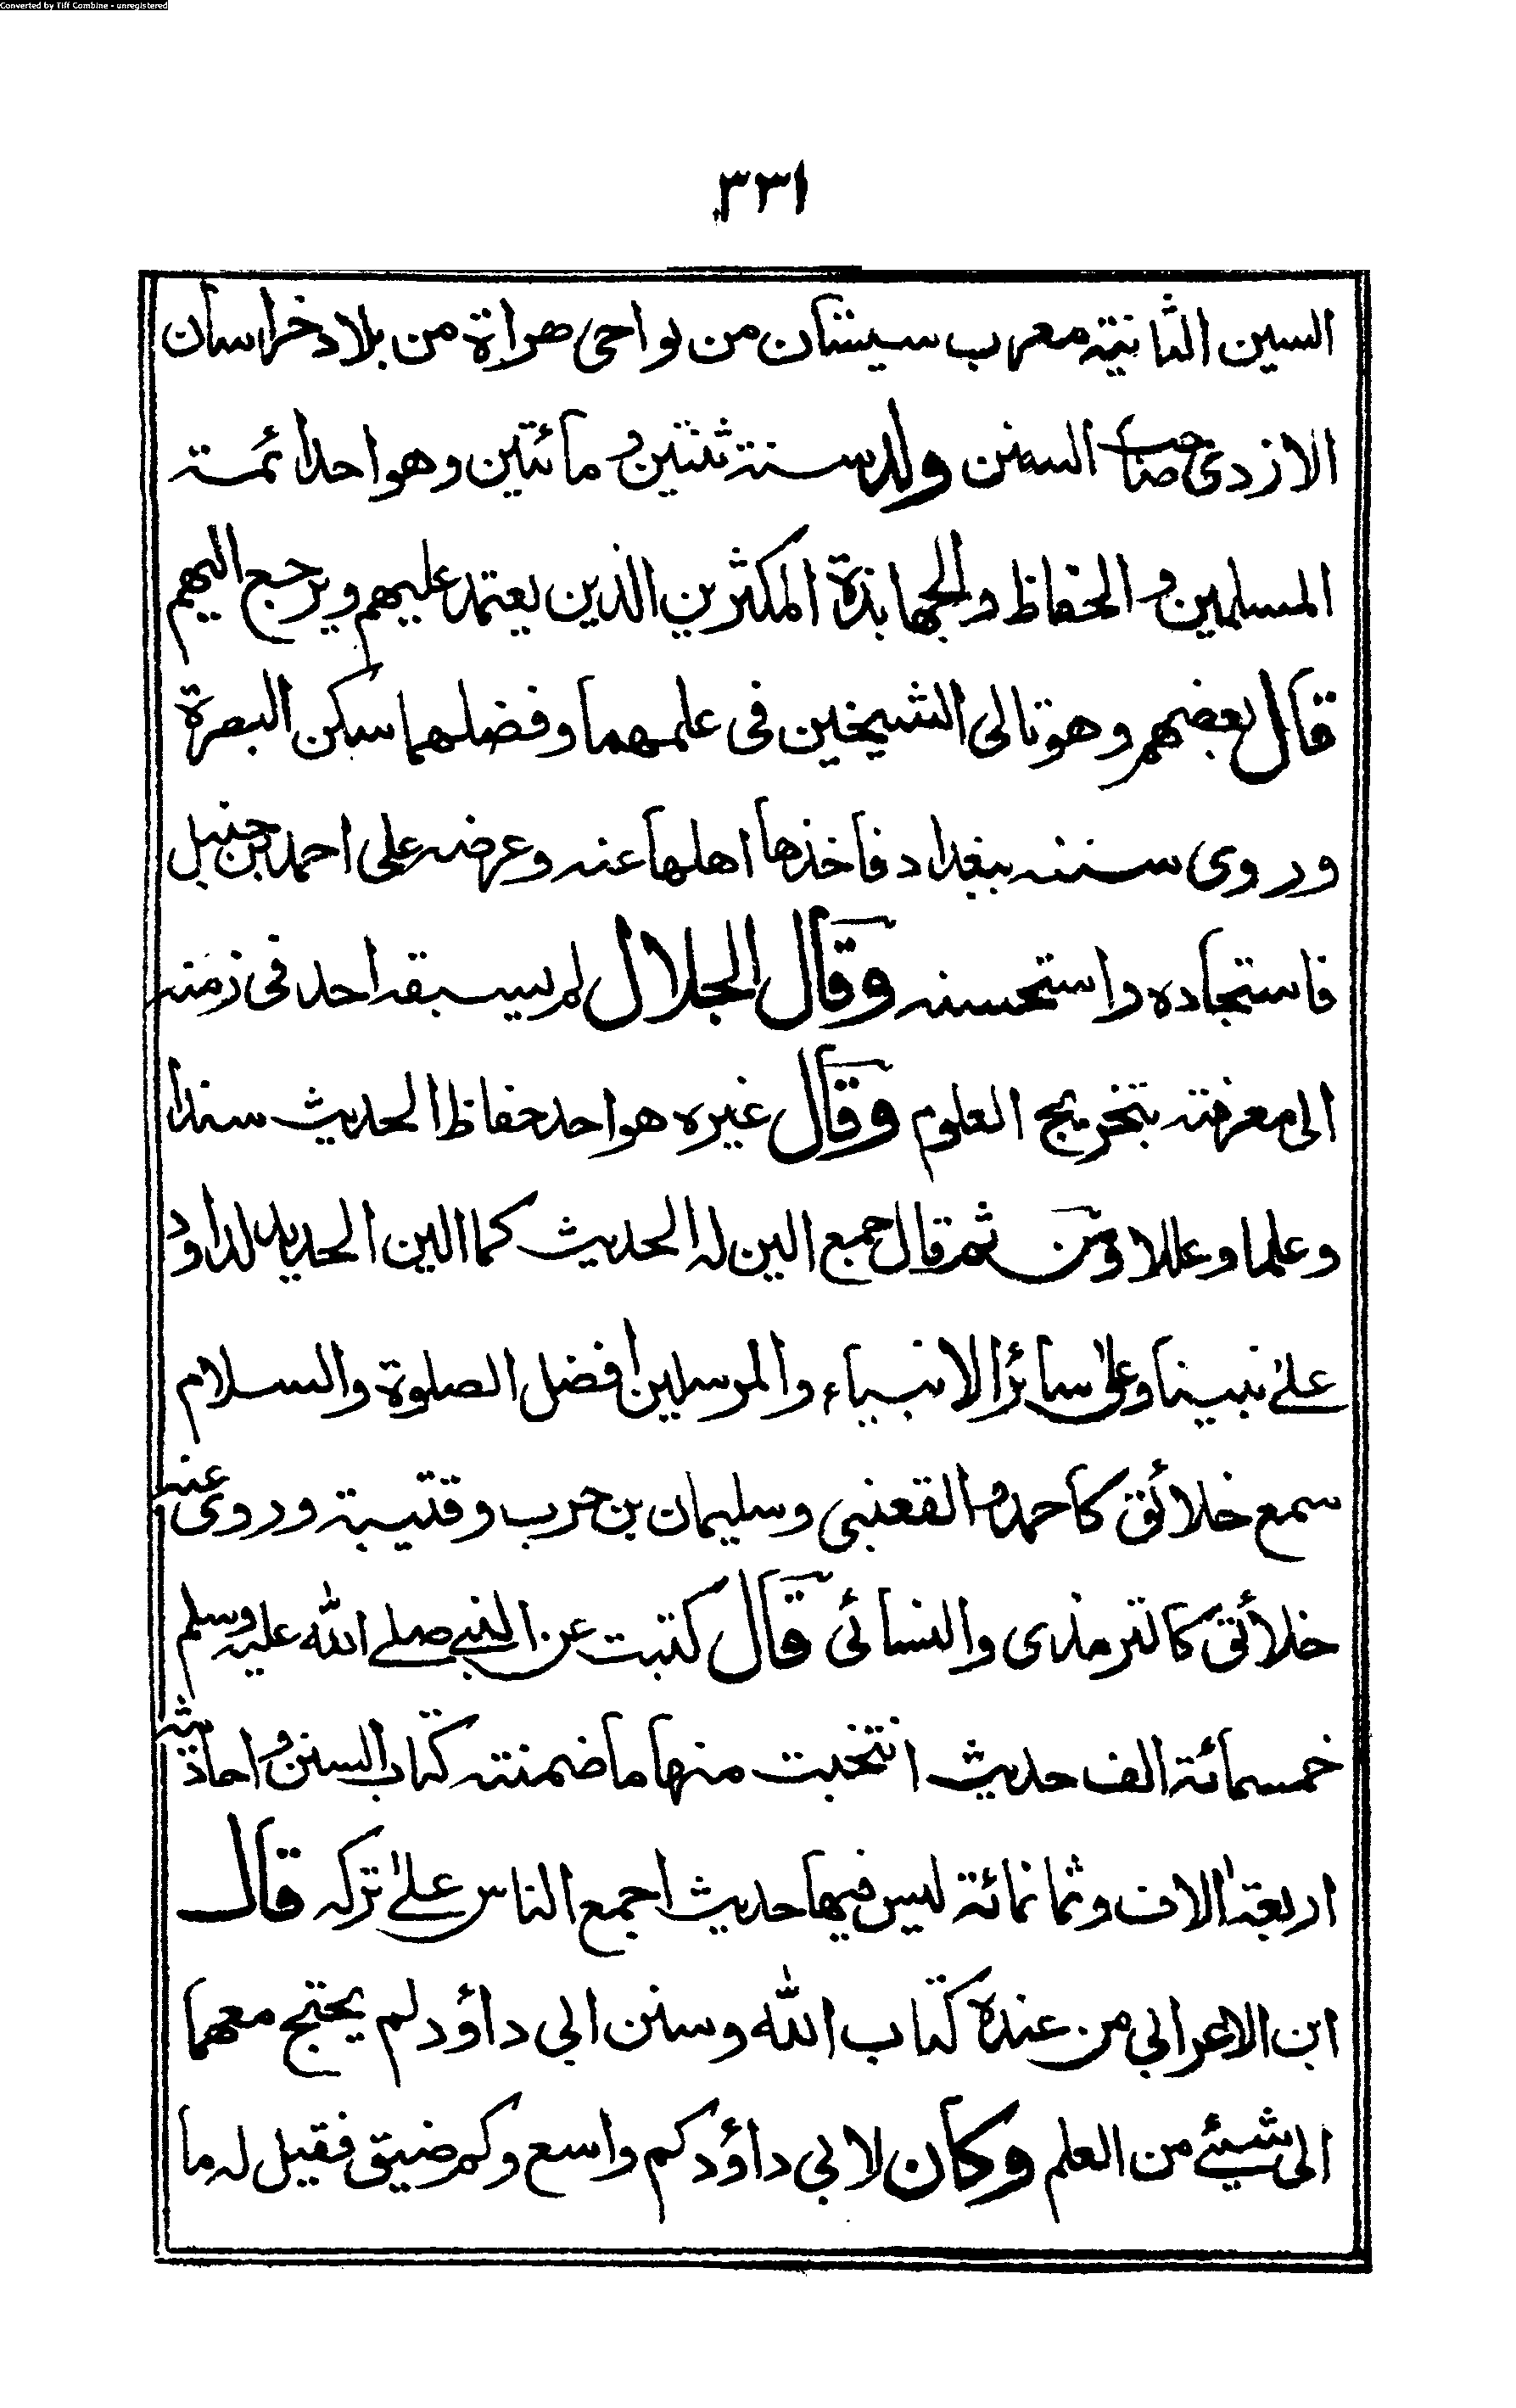 Converted by Tiff Combine - unregistered
٣٣١
السين الثانية معرب سيستان من نواحى هراة من بلاد خراسان
الازدى صاحب السنن ولد سنة ثنتين و مائتين وهو احد ائمة
المسلمين و الحفاظ والجهابذة المكثرين الذين يعتمد عليهم ويرجع اليهم
قال بعضهم وهو تالى الشيخين فى علمهما وفضلهما سكن البصرة
وروى سننه ببغداد فاخذها اهلها عنه وعرضه على احمد بن حنبل
فاستجاده واستحسنه وقال الجلال لم يسبقه احد فى زمنه
الى معرفته بتخريج العلوم وقال غيره هو احد حفاظ الحديث سندا
وعلما وعللا ومن ثم قال جمع الين له الحديث كما الين الحديد لداود
على نبينا وعلى سائر الانبياء والمرسلين افضل الصلوة والسلام
سمع خلائق كاحمد و القعنبى وسليمان بن حرب وقتيبة وروى عنه
خلائق كالترمذى والنسائى قال كتبت عن النبى صلے الله عليه وسلم
خمسمائة الف حديث انتخبت منها ما ضمنته كتاب السنن و احاديثه
اربعة الاف وثمانمائة ليس فيها حديث اجمع الناس على تركه قال
ابن الاعرابى من عنده كتاب الله وسنن ابى داؤد لم يحتج معهما
الى شيئے من العلم وكان لابى داؤد كم واسع وكم ضيق فقيل له ما